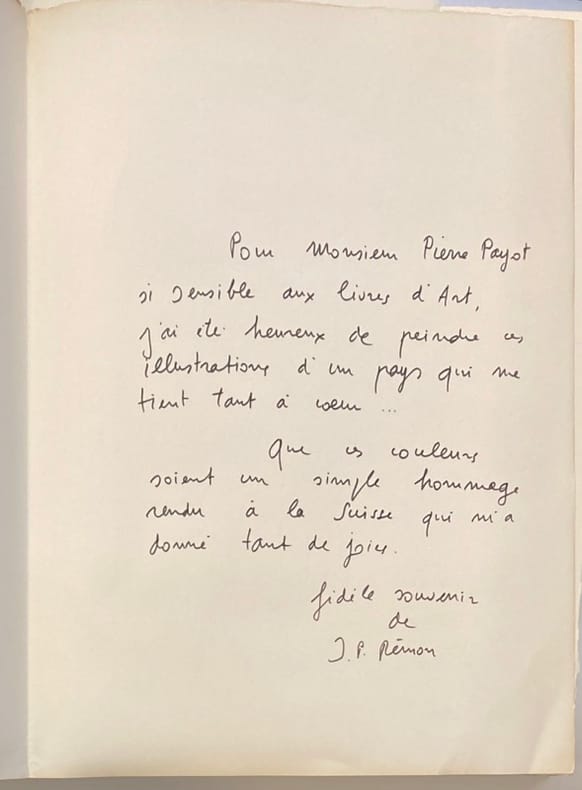 Pour Monsieur Pierre Payot
si sensible aux livres d'Art,
j'ai été heureux de peindre ces
illustrations d'un pays qui me
tient tant à coeur ...
Que ces couleurs
soient un simple hommage
rendu à la Suisse qui m'a
donné tant de joies.
fidèle souvenir
de
J. P. Rémon